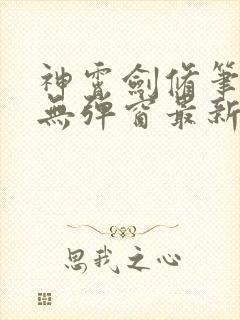 神霄劍脩筆
無彈窗最新
思我之心